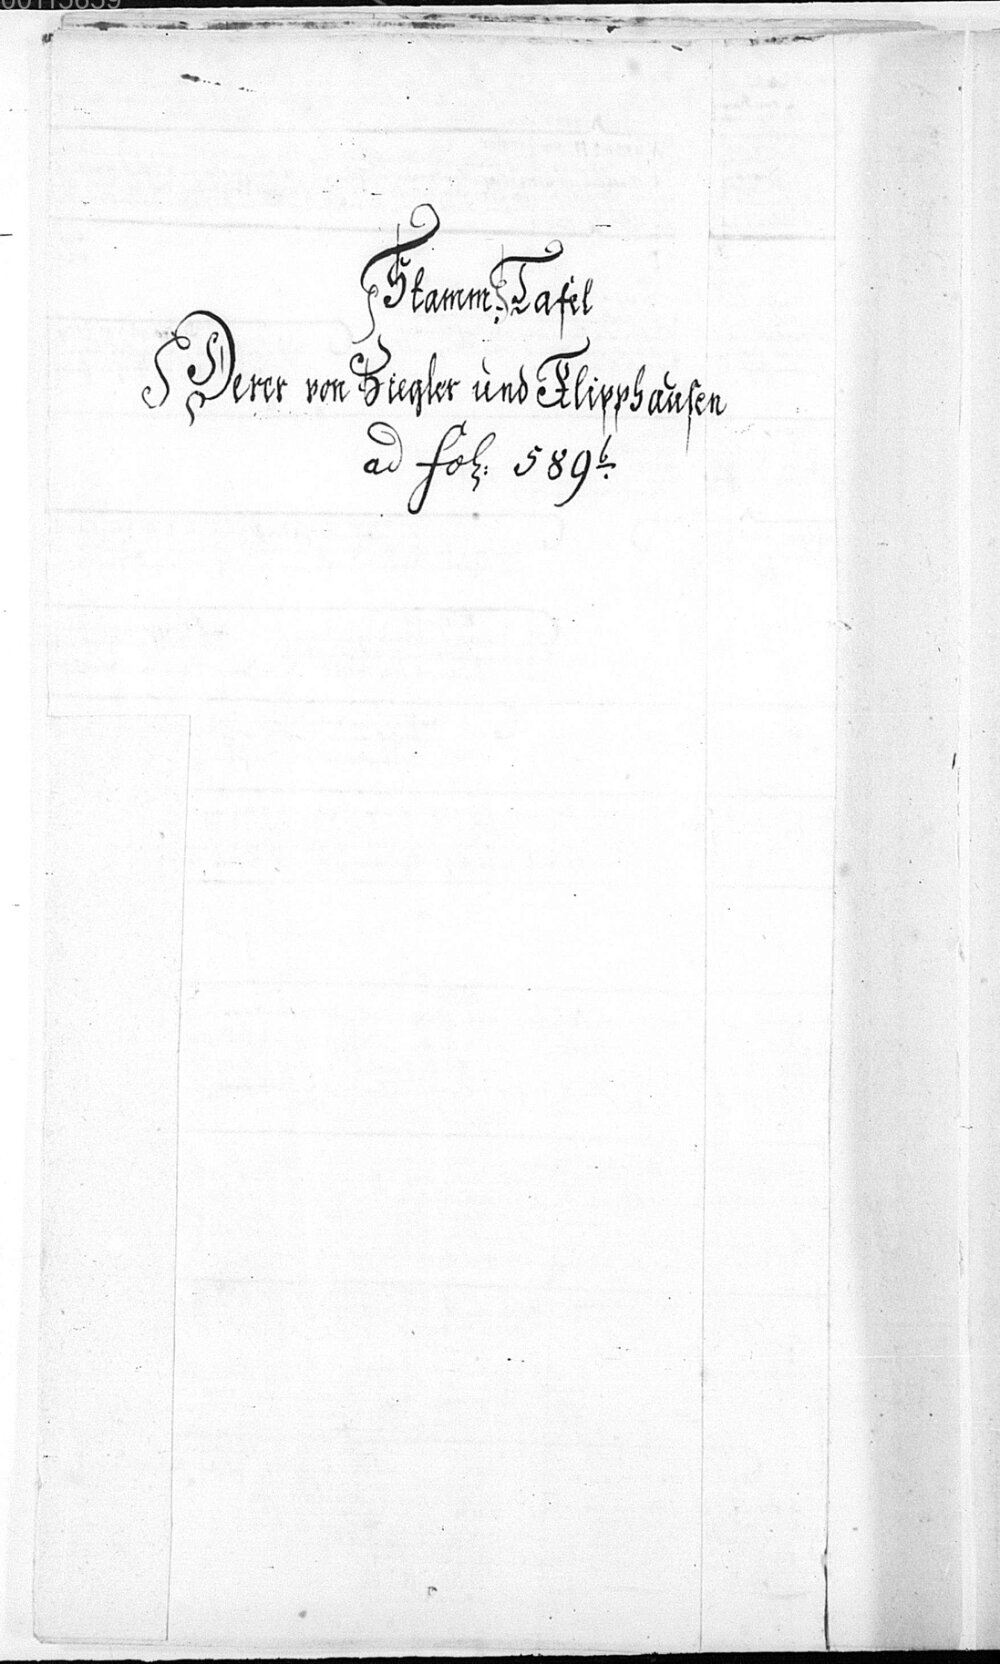 Stamm-Tafel
Derer von Ziegler und Klipphausen
ad fol: 589b.